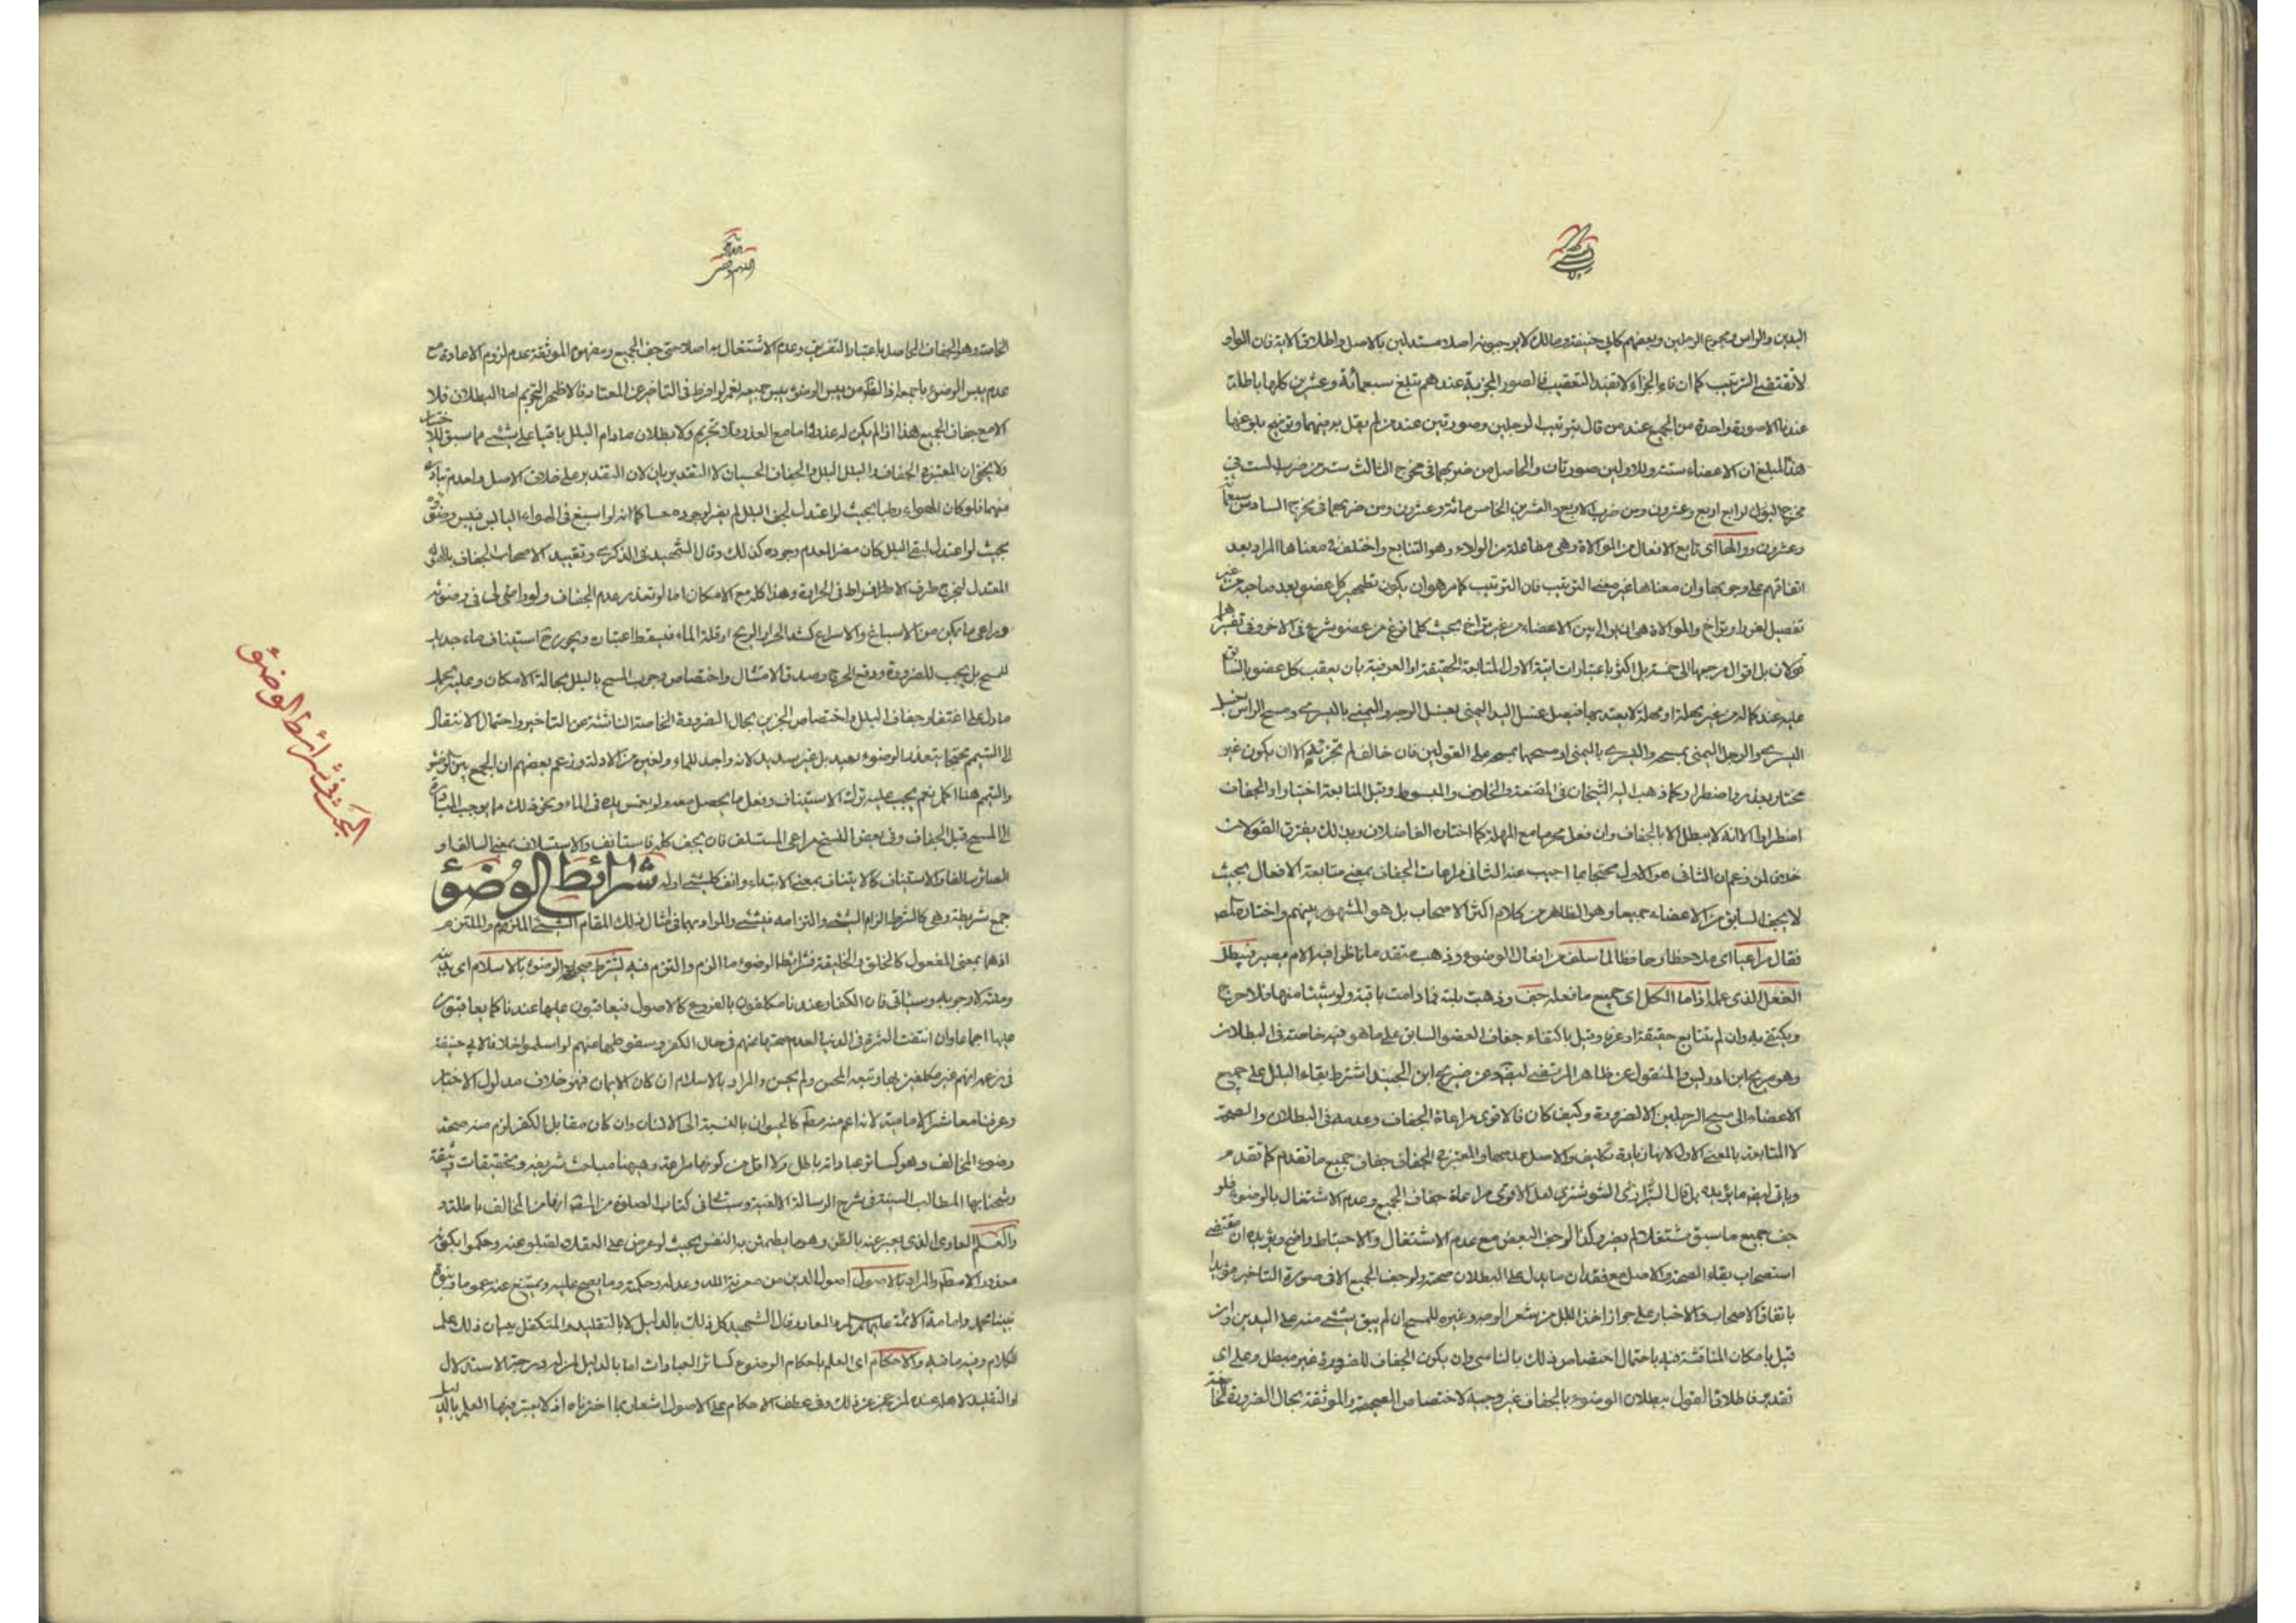 اليدين والراس ومجموع الرجلين وبعضهم كابي حنيفة ومالك لا يوجبونه اصلا مستدلين بالاصل واطلاق الاية فان الواو
لا تقتضي الترتيب كما ان فاء الجزاء لا تفيد التعقيب فالصور المجزية عندهم تبلغ سبعمائة وعشرين كلها باطلة
عندنا الا صورة واحدة من الجميع عند من قال بترتيب الرجلين وصورتين عند من لم يقل به فيهما وتوضيح بلوغها
هذا المبلغ ان الاعضاء ستة وللاولين صورتان والحاصل من ضربهما في مخرج الثالث ستة ومن ضرب الست في
مخرج الرابع اربع وعشرون ومن ضرب الاربع والعشرين الخامس مائة وعشرون ومن ضربها في مخرج السادس سبعمائة
وعشرون ووالها اي تابع الافعال من الموالاة وهي مفاعلة من الولاء وهو التتابع واختلف في معناها المراد بعد
اتفاقهم على وجوبها وان معناها غير معنى الترتيب فان الترتيب كما مر هو ان يكون تطهير كل عضو بعد صاحبه من غير
تفصيل لفور او تراخ والموالاة هي ان يوالي بين الاعضاء من غير تراخ بحيث كلما فرغ من عضو شرع في الاخر وفي تفسيرها
قولان بل اقوال مرجعها الى خمسة بل اكثر باعتبارات الاول المتابعة الحقيقة او العرفية بان يعقب كل عضو بالسابق
عليه عند كماله من غير مهلة او مهلة لا يعتد بها فيصل غسل اليد اليمنى بغسل الوجه واليمنى باليسرى ومسح الراس بغسل
اليسرى والرجل اليمنى بمسحه واليسرى باليمنى او مسحهما بمسحه على القولين فان خالف لم تجزئه الا ان يكون غير
مختار بعذر واضطرار وكما ذهب اليه الشيخان في المقنعة والخلاف والمبسوط وقيل المتابعة اختيارا والجفاف
اضطرارا لانه لا يبطل الا بالجفاف وان فعل محرما مع المهلة كما اختاره الفاضلان وبذلك يفترق القولان
خلافا لمن زعم ان الثاني هو الاول محتجا بما اجيب عنه الثاني مراعات الجفاف بمعنى متابعة الافعال بحيث
لا يجف السابق من الاعضاء جميعا وهو الظاهر من كلام اكثر الاصحاب بل هو المشهور بينهم واختاره
فقال مراعيا اي ملاحظا وحافظا لما سلف من افعال الوضوء وذهب متقدما ناظرا فيه الام يصير فيبطل
الفعل الذي عمله اذا ما الكل اي جميع ما فعله جف وذهبت بلته فما دامت باقية ولو شيئا منها فلا حرج
ويكتفي به وان لم يتتابع حقيقة او عرفا وقيل باكتفاء جفاف العضو السابق على ما هو فيه خاصة في البطلان
وهو صريح ابن ادريس والمنقول عن ظاهر المرتضى ليفهم عن صريح ابن الجنيد اشترط بقاء البلل على جميع
الاعضاء الى مسح الرجلين الا لضرورة وكيف كان فالاقوى مراعاة الجفاف وعدمه في البطلان والصحة
لا المتابعة بالمعنى الاول لانها زيادة تكليف والاصل عدمها والمعتبر في الجفاف جفاف جميع ما تقدم كما تقدم
وياتي ايضا ما يؤيده بل قال الشوشتري لعل الاقوى مراعاة جفاف الجميع وعدم الاشتغال بالوضوء فلو
جف جميع ما سبق مشتغلا لم يضر وكذا لو جف البعض مع عدم الاشتغال والاحتياط واضح ويؤيده ان مقتضى
استصحاب بقاء الصحة والاصل مع فقدان ما يدل على البطلان صحته ولو جف الجميع الا في صورة التاخير مؤيدا
باتفاق الاصحاب والاخبار على جواز اخذ البلل من شعر الوجه وغيره للمسح ان لم يبق شيء منه على اليدين وان
قيل بامكان المناقشة فيه باحتمال اختصاص ذلك بالناسي وان يكون الجفاف للضرورة غير مبطل وعلى اي
تقدير فاطلاق القول ببطلان الوضوء بالجفاف غير وجيه لاختصاص الصحيحة والموثقة بحال الضرورة الخاصة
الخاصة وهو الجفاف الحاصل باعتبار التفريق وعدم الاشتغال به اصلا حتى جف الجميع ومفهوم الموثقة عدم لزوم الاعادة مع
عدم يبس الوضوء باجمعه اذ الظاهر من يبس الوضوء يبس جميعه نعم لو افرط في التاخير عن المعتاد فالاظهر التحريم اما البطلان فلا
الا مع جفاف الجميع هذا اذا لم يكن له عذر واما مع العذر فلا تحريم ولا بطلان ما دام البلل باقيا على شيء مما سبق للاخبار
ولا يخفى ان المعتبر في الجفاف والبلل البلل والجفاف الحسيان لا التقديريان لان التقدير على خلاف الاصل ولعدم تبادره
منهما فلو كان الهواء رطبا بحيث لو اعتدل لجف البلل لم يضر لوجوده حسا كما انه لو اسبغ في الهواء اليابس فيبس وضوؤه
بحيث لو اعتدل لبقي البلل كان مضرا لعدم وجوده كذلك وقال الشهيد في الذكرى وتقييد الاصحاب الجفاف بالهواء
المعتدل ليخرج طرف الافراط في الحرارة وهذا كله مع الامكان اما لو تعذر عدم الجفاف ولو دام حتى في وضوئه
وراعى ما يمكن من الاسباغ والاسراع كشدة الحر او الريح او قلة الماء فيسقط اعتباره ويجوز ح استيناف ماء جديد
للمسح بل يجب للضرورة ودفع الحرج وصدق الامتثال واختصاص وجوب المسح بالبلل بحالة الامكان وعليه يحمل
ما دل على اغتفار جفاف البلل واختصاص الخبرين بحال الضرورة الخاصة الناشئة من التاخير واحتمال الانتقال
الى التيمم محتجا بتعذر الوضوء بعيد بل غير سديد لانه واجد للماء ولغيره من الادلة وزعم بعضهم ان الجمع بين الوضوء
والتيمم هنا اكمل نعم يجب عليه ترك الاستيناف وفعل ما يحصل معه ولو بغمس يده في الماء ونحو ذلك مما يوجب المبادرة
الى المسح قبل الجفاف وفي بعض النسخ مراعي المستلف فان يجف كله فاستانف والاستلاف بمعنى السالف او
الصائر سالفا والاستيناف كالايتناف بمعنى الابتداء وانف كل شيء اوله شرائط الوضوء
جمع شريطة وهي كالشرط الزام الشيء والتزامه في شيء والمراد بها في امثال ذلك المقام الشيء الملزوم والملتزم
اذ هما بمعنى المفعول كالخلق والخليقة فشرائط الوضوء ما الزم والتزم فيه لشرط صحة الوضوء بالاسلام اي بدينه
وملته لا وجوبه وسياتي فان الكفار عندنا مكلفون بالفروع كالاصول فيعاقبون عليها عندنا كما يعاقبون
عليها اجماعا وان انتفت الثمرة في الدنيا لعدم صحتها عنهم في حال الكفر وسقوطها عنهم لو اسلموا خلافا لابي حنيفة
في زعمه انهم غير مكلفين بها وتبعه المحسن ولم يحسن والمراد بالاسلام ان كان الايمان فهو خلاف مدلول الاخبار
وعرفنا معاشر الامامية لانه اعم منه مطلقا كالحيوان بالنسبة الى الانسان وان كان مقابل الكفر لزم منه صحة
وضوء المخالف وهو كسائر عباداته باطل ولا اقل من كونها مراعية وههنا مباحث شريفة وتحقيقات دقيقة
وشحنا بها المطالب السنية في شرح الرسالة الالفية وسياتي في كتاب الصلوة من المقر انها من المخالف باطلة
والعلم العادي الذي يعبر عنه بالظن وهو ما يطمئن به النفس بحيث لو عرض على العقلاء لقبلوه عنه وحكموا بكونه
معذورا لا مطلقا والمراد بالاصول اصول الدين من معرفة الله وعدله وحكمته وما يصح عليه ويمتنع عنه عموما ونبوة
نبينا محمد وامامة الائمة عليهم السلام والمعاد قال الشهيد كل ذلك بالدليل لا بالتقليد والمتكفل ببيان ذلك علم
الكلام وفيه ما فيه والاحكام اي العلم باحكام الوضوء كسائر العبادات اما بالدليل لمن له درجة الاستدلال
او التقليد لاهله عند لمن عجز عن ذلك وفي عطف الاحكام على الاصول اشعار بما اخترناه اذ لا يعتبر فيها العلم بالدليل
البحث في شرائط الوضوء